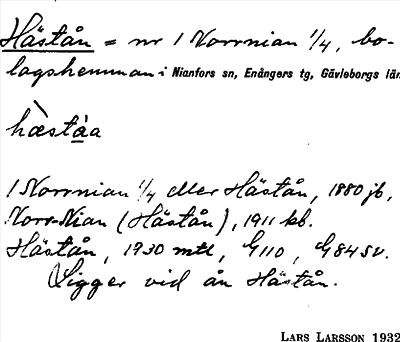 Hästån = nr 1 Norrnian 1/4, bo-
lagshemman i Nianfors sn, Enångers tg, Gävleborgs län
hæ̀stå̱a
1 Norrnian 1/4 eller Hästån, 1880 jb,
Norr-Nian (Hästån), 1911 kb.
Hästån, 1930 mtl, G110, G84 SV.
Ligger vid ån Hästån.
LARS LARSSON 1932